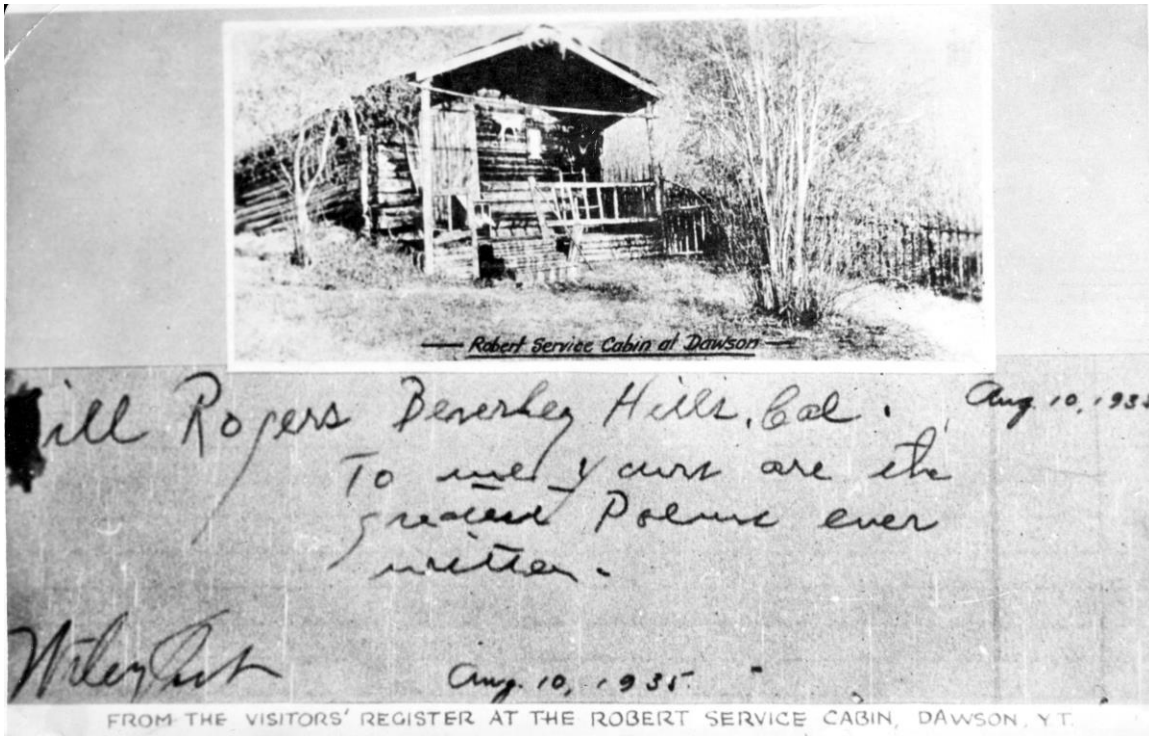 Robert Service Cabin at Dawson
ill Rogers Beverley Hills, Cal. Aug. 10, 1935
To me yours are the
greatest Poems ever
written.
Wiley Post
Aug. 10, 1935
FROM THE VISITORS' REGISTER AT THE ROBERT SERVICE CABIN, DAWSON, Y.T.